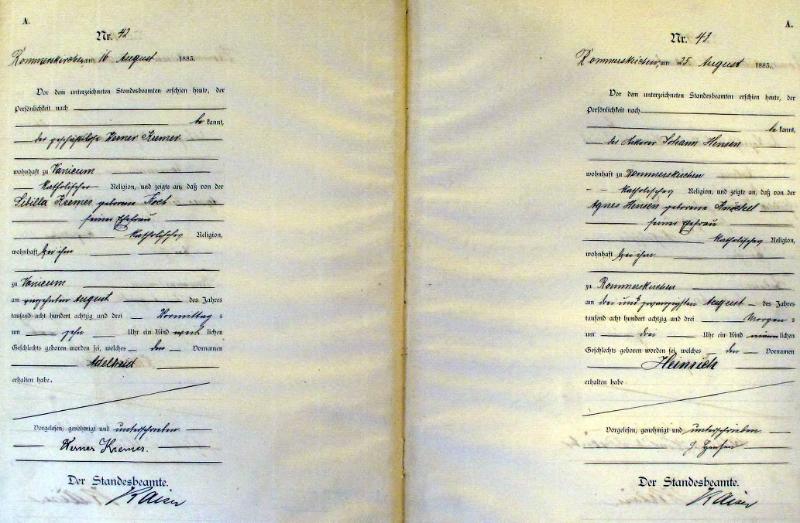 A.
Nr. 42
Rommerskirchen, am 16 August 1883.
Vor dem unterzeichneten Standesbeamten erschien heute, der
Persönlichkeit nach
be kannt,
der geschäftslose Werner Kremer
wohnhaft zu Vanicum
katholischer Religion, und zeigte an, daß von der
Sibilla Kremer geborene Koch
seiner Ehefrau
katholischer Religion,
wohnhaft bei ihm
zu Vanicum
am August des Jahres
tausend acht hundert achtzig und drei Vormittag s
um zehn Uhr ein Kind weib lichen
Geschlechts geboren worden sei, welches den Vornamen
Adelheid
erhalten habe.
Vorgelesen, genehmigt und unterschrieben
Werner Kremer.
Der Standesbeamte.
Kaiser
A.
Nr. 43
Rommerskirchen, am 25 August 1883.
Vor dem unterzeichneten Standesbeamten erschien heute, der
Persönlichkeit nach
be kannt,
der Ackerer Johann Hensen
wohnhaft zu Rommerskirchen
katholischer Religion, und zeigte an, daß von der
Agnes Hensen geborene
seiner Ehefrau
katholischer Religion,
wohnhaft bei ihm
zu Rommerskirchen
am drei und zwanzigsten August des Jahres
tausend acht hundert achtzig und drei Morgen s
um drei Uhr ein Kind männ lichen
Geschlechts geboren worden sei, welches den Vornamen
Heinrich
erhalten habe
Vorgelesen, genehmigt und unterschrieben
J. Hensen
Der Standesbeamte.
Kaiser